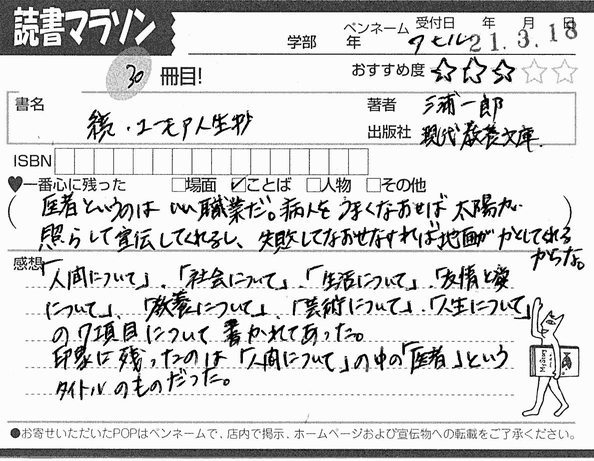 読書マラソン
30 冊目!
学部 年 ペンネーム ワセル 受付日 年 月 日 21.3.18
おすすめ度 ☆☆☆☆☆
書名 続・ユーモア人生抄
著者 三浦一郎
出版社 現代教養文庫
ISBN
♥一番心に残った □場面 ☑ことば □人物 □その他
(医者というのはいい職業だ。病人をうまくなおせば太陽が
照らして宣伝してくれるし、失敗してなおせなければ地面がかくしてくれる
からな。)
感想 「人間について」、「社会について」、「生活について」、「友情と愛
について」、「教養について」、「芸術について」、「人生について」
の7項目について書かれてあった。
印象に残ったのは「人間について」の中の「医者」という
タイトルのものだった。
●お寄せいただいたPOPはペンネームで、店内で掲示、ホームページおよび宣伝物への転載をご了承ください。